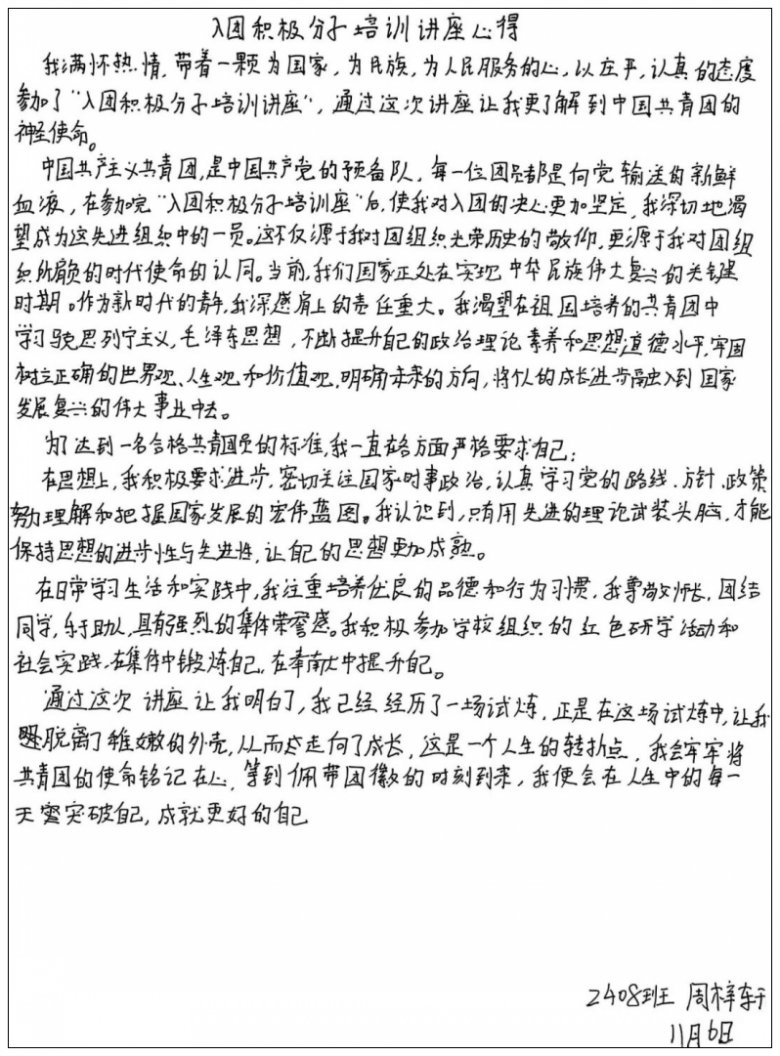 入团积极分子培训讲座心得
我满怀热情,带着一颗为国家,为民族,为人民服务的心,以左平,认真的态度
参加了“入团积极分子培训讲座”,通过这次讲座让我更了解到中国共青团的
神圣使命。
中国共产主义共青团,是中国共产党的预备队,每一位团员都是向党输送的新鲜
血液,在参加完“入团积极分子培训座”后,使我对入团的决心更加坚定,我深切地渴
望成为这先进组织中的一员。这不仅源于我对团组织光荣历史的敬仰,更源于我对团组
织所肩负的时代使命的认同。当前,我们国家正处在实现中华民族伟大复兴的关键
时期。作为新时代的青年,我深感肩上的责任重大。我渴望在祖国培养的共青团中
学习马克思列宁主义,毛泽东思想,不断提升自己的政治理论素养和思想道德水平,牢固
树立正确的世界观、人生观和价值观,明确未来的方向,将个人的成长进步融入到国家
发展复兴的伟大事业中去。
为了达到一名合格共青团员的标准,我一直在各方面严格要求自己:
在思想上,我积极要求进步,密切关注国家时事政治,认真学习党的路线、方针、政策
努力理解和把握国家发展的宏伟蓝图。我认识到,只有用先进的理论武装头脑,才能
保持思想的进步性与先进性,让自己的思想更加成熟。
在日常学习生活和实践中,我注重培养优良的品德和行为习惯,我尊敬师长,团结
同学,乐于助人,具有强烈的集体荣誉感。我积极参加学校组织的红色研学活动和
社会实践,在集体中锻炼自己,在奉献中提升自己。
通过这次讲座让我明白了,我已经经历了一场试炼,正是在这场试炼中,让我
脱离了稚嫩的外壳,从而走向了成长,这是一个人生的转折点,我会牢牢将
共青团的使命铭记在心,等到佩带团徽的时刻到来,我便会在人生中的每一
天突破自己,成就更好的自己
2408班 周梓轩
11月6日